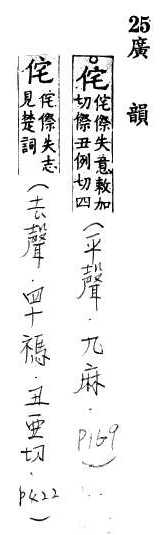 25 廣韻
侘 侘傺失意敕加切傺丑例切四 (平聲．九麻．P169)
侘 侘傺失志見楚詞 (去聲．四十禡．丑亞切．P422)